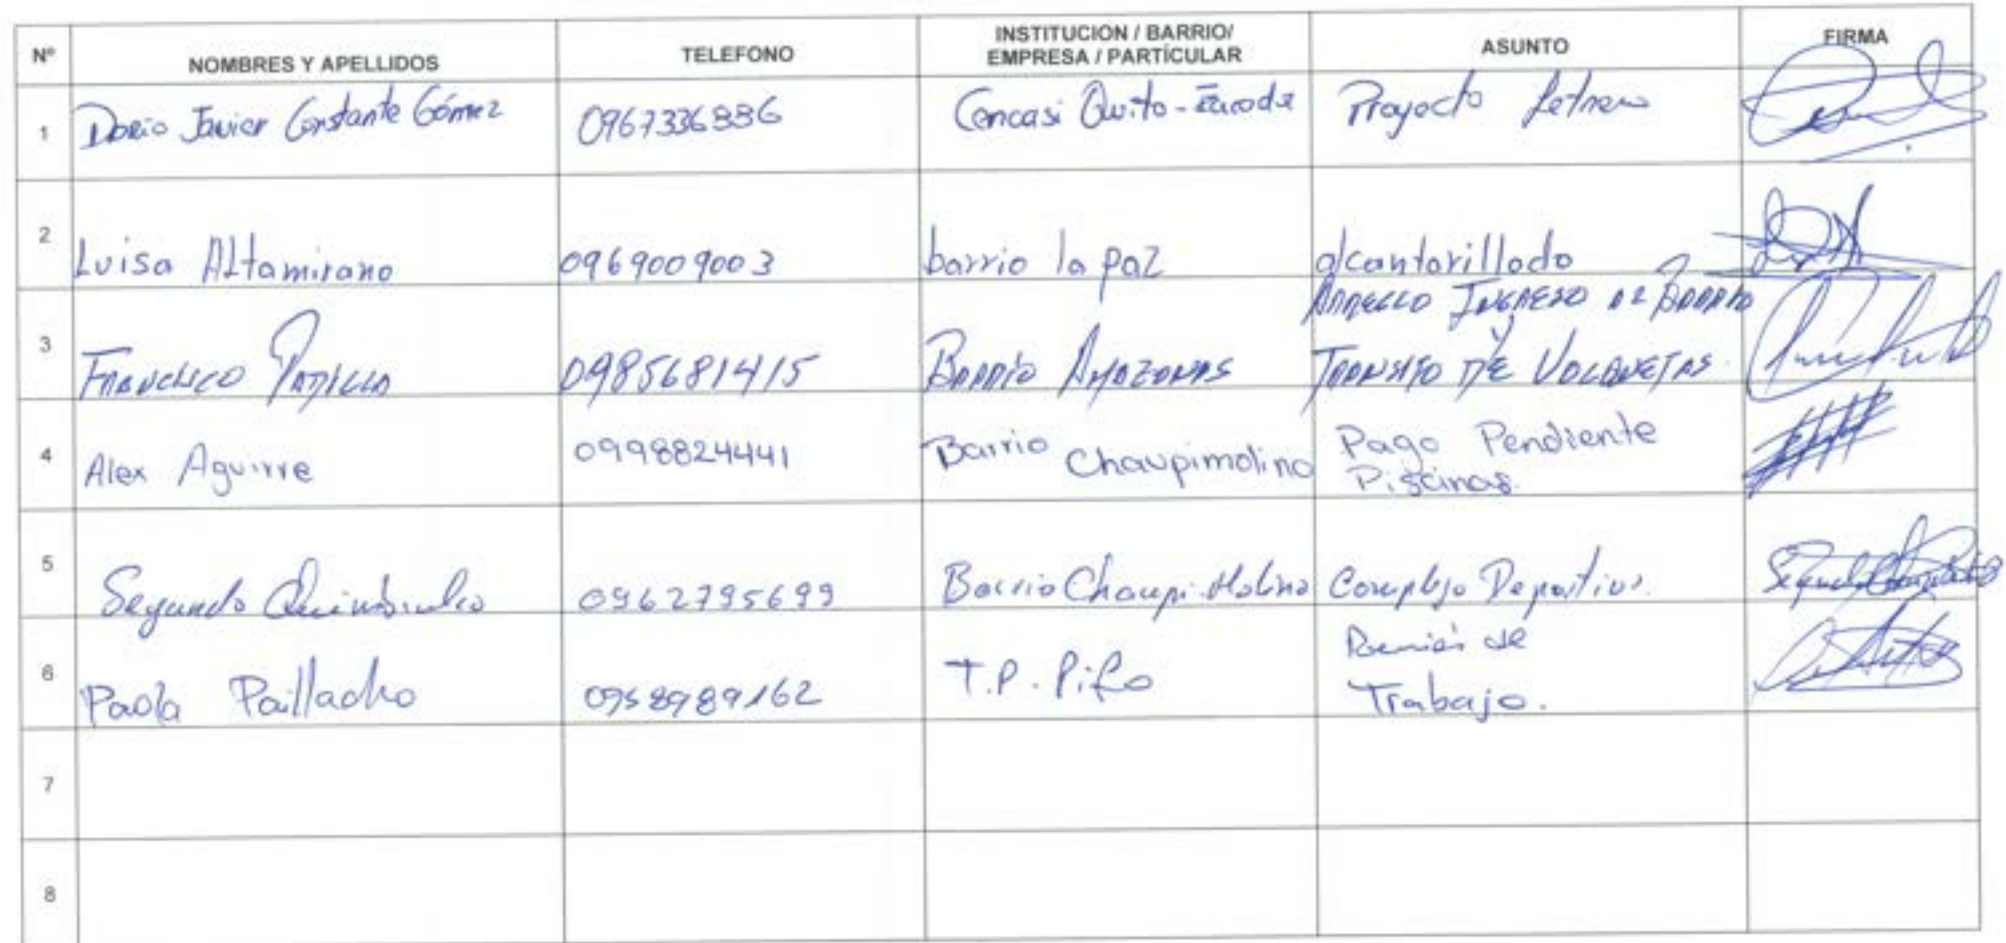 Nº NOMBRES Y APELLIDOS TELEFONO INSTITUCION / BARRIO/ EMPRESA / PARTÍCULAR ASUNTO FIRMA
1 Dario Javier Constante Gómez 0967336886 Quito - Proyecto Letrero
2 Luisa Altamirano 0969009003 barrio la paz alcantarillado
3 Francisco Padilla 0985681415 Barrio Amazonas Arreglo Ingreso al Barrio
y
Transito de Volquetas.
4 Alex Aguirre 0998824441 Barrio Chaupimolino Pago Pendiente
Piscinas.
5 Segundo 0962795699 Barrio Chaupi Molino Complejo Deportivo.
6 Paola Paillacho 0958989162 T.P. Pifo Reunión de
Trabajo.
7
8